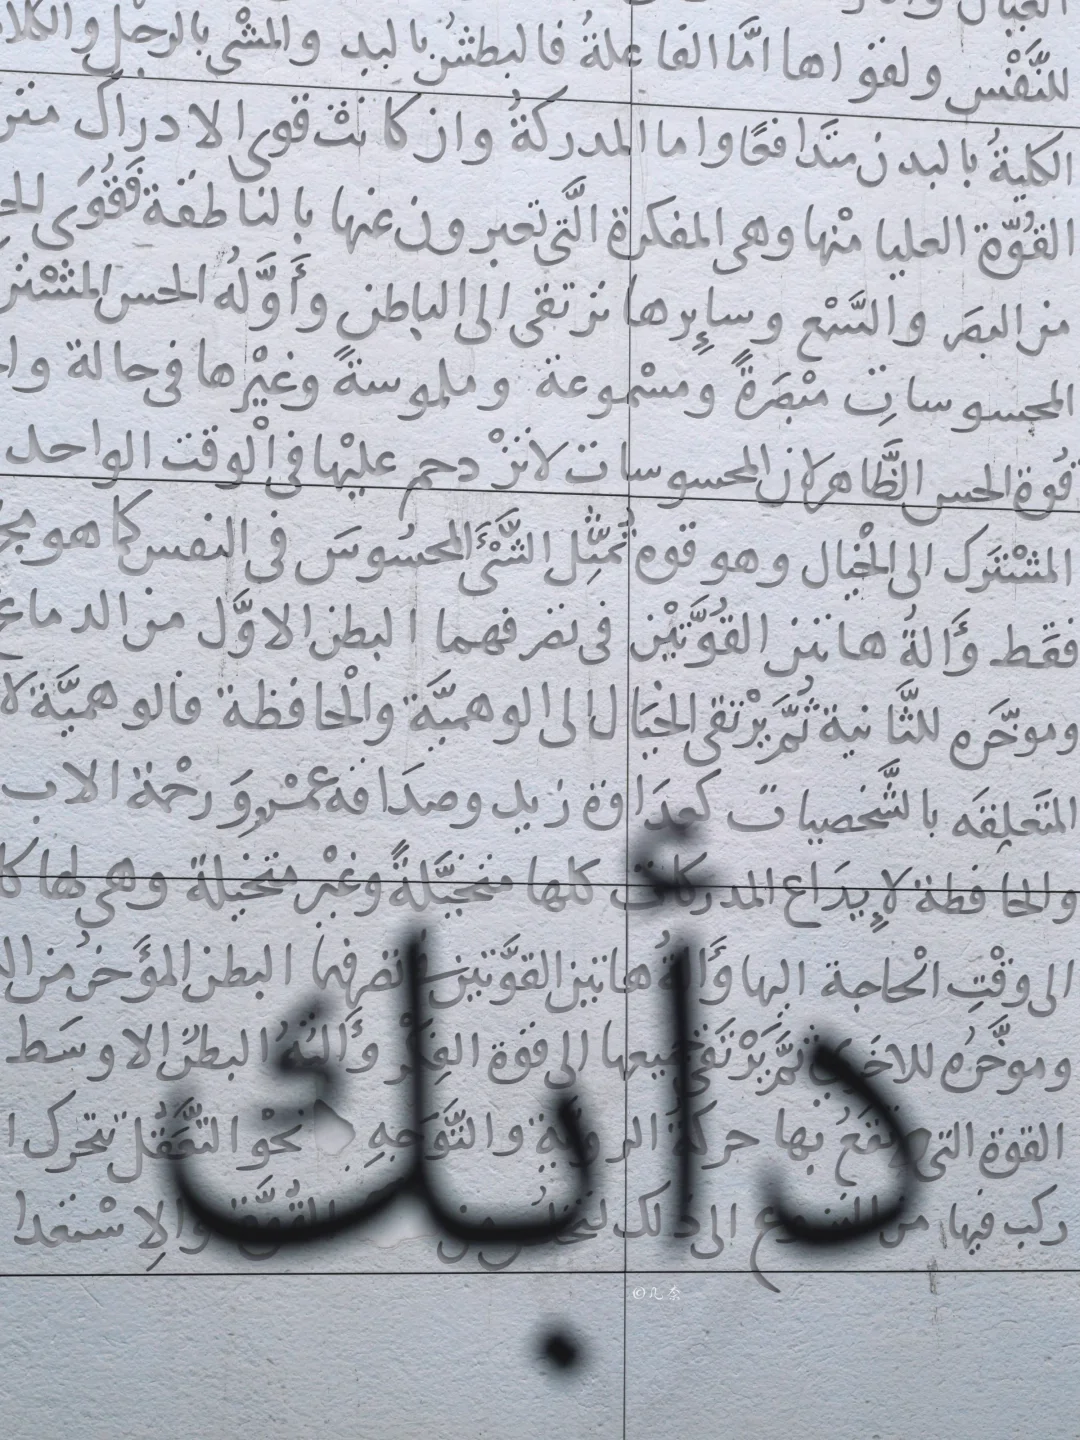 للنَّفْس ولقواها امَّا الفاعلةُ فالبطشُ باليد والمشْي بالرجل والكلام
الكليةُ بالبدن متَدافعًا واما المدركةُ وان كانتْ قوى الادراك
القُوّة العليا منْها وهى المفكرة الَّتى تعبرون عنها بالناطقة فقُوَى
من البصَر والسَّمْع وسايِرها ترتقى الى الباطن وأَوَّلهُ الحس المشْترك
المحسوساتِ مبْصَرَةً ومسْموعة وملموسةً وغيْرها فى حالة
قُوة الحس الظَّاهر لان المحسوسات لا تزْدحم عليْها فى الْوقت الواحد
المشْتَرك الى الْخيال وهو قوه تُمثِّل الشَّىْءَ المحسُوسَ فى النفس كما هو
فقَط وأَالةُ هاتين القُوَّتيْن فى تصرفهما البطن الاوَّل من الدماغ
وموخّره للثَّانية ثُمَّ يرْتقى الخيَال الى الوهميَّة والْحافظة فالوهميَّة
المتَعلِقَه بالشَّخصيات كعدَاوة زيد وصدَاقة عمْروَ ورحْمة الاب
والحافظة لإِيدَاع المدركات كلها متخيَّلةً وغيْر متخيلة وهى لها
الى وقْتِ الْحاجة اليها وأَالةُ هاتين القوَّتين فى تصرفها البطن المؤَخرُ من
وموخَّرُه للاخَرى ثمَّ يَرْتَقى جميعها الى قوة الفِكْر وأَالتُهُ البطنُ الاوسَط
القوة التى يقَعُ بها حركة الروية والتَّوَجهِ نحْو التعَقل تتحرك
ركب فيها من النزوع الى ذلك لتخلص من القُوَّة والاِسْتعدا
دأبك
©几奈